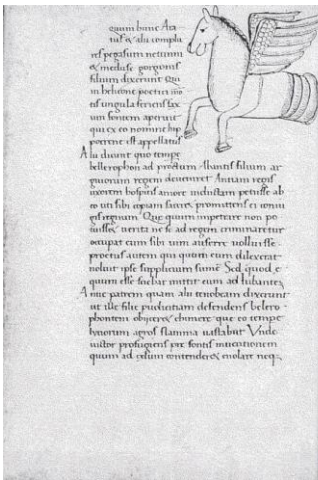 equum hunc Ara
tus & alii complu
res pegasum neptuni
& meduse gorgonis
filium dixerunt Qui
in helicone poetici mo
tis ungula feriens sax
um fontem aperuit
qui ex eo nomine hip
pocrene est appellatus
Alii dicunt quo tempe
bellerophon ad proetum Abantis filium ar
giuorum regem deuenerit Antiam regis
uxorem hospitis amore inductam petisse ab
eo uti sibi copiam facer& promittens ei coniu
gis regnum Que quum impetrare non po
tuisse& uerita ne se ad regem criminaretur
occupat eum sibi uim auferre uoluisse
proetus autem qui quum eum dilexerat
noluit ipse supplicium sume Sed quod e
quum esse sciebat mittit eum ad iubaten
Antie patrem quam alii tenoboeam dixerunt
ut ille filie pudicitiam defendens belero
phontem obicer& chimere que eo tempe
agros flamma uastabat Unde
uictor profugiens pre fontis inuentionem
quum ad celum contender& euolare neq;